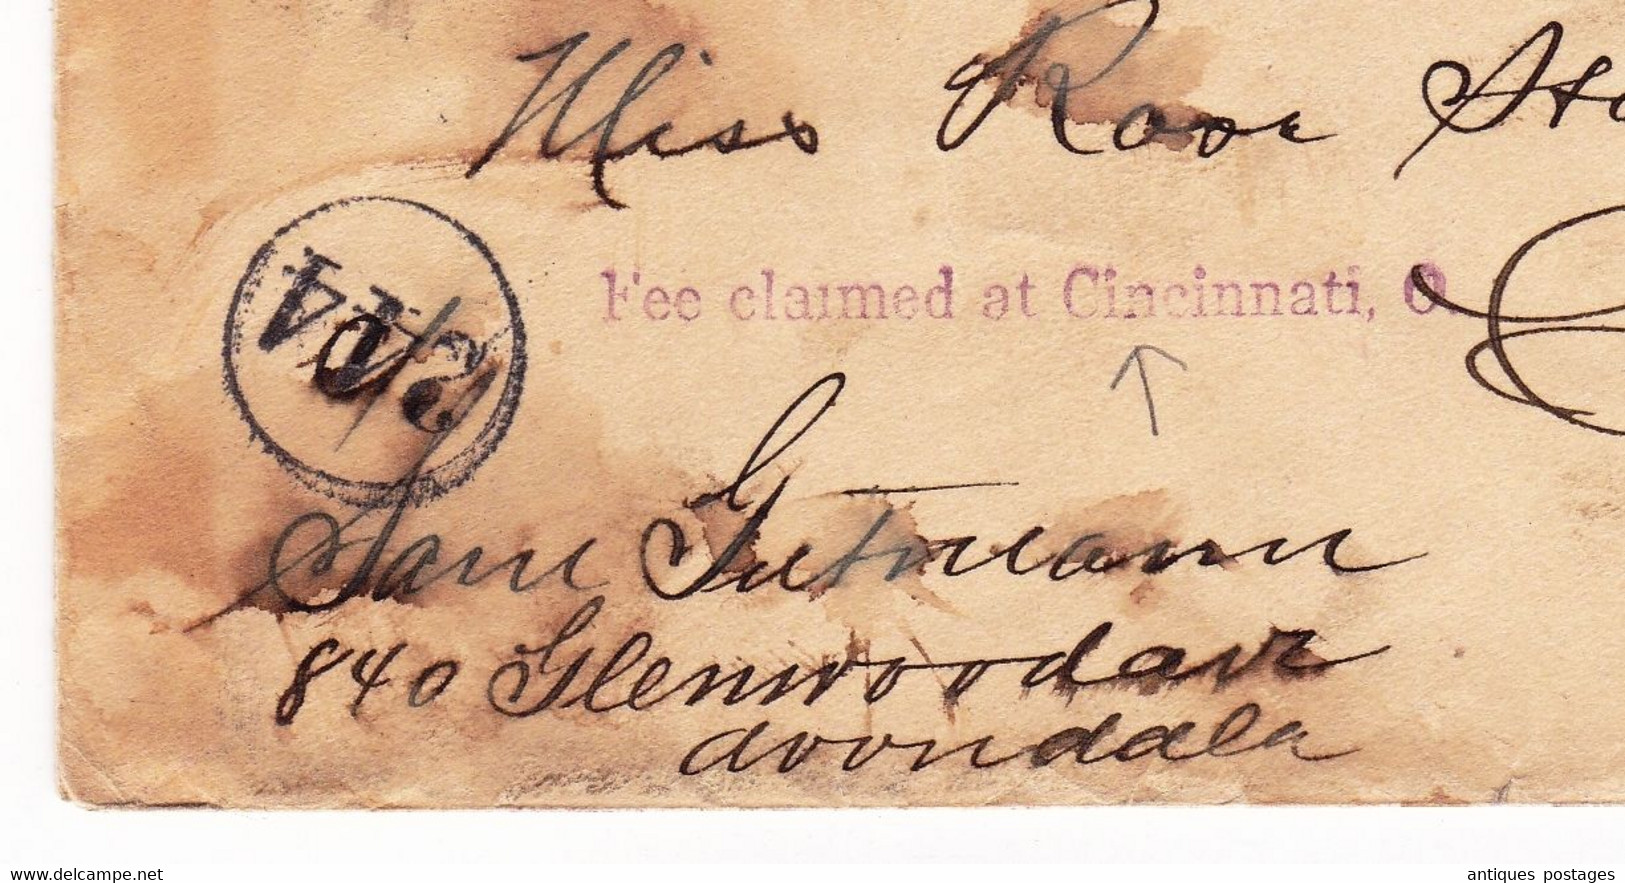 Miss Rose
Fee claimed at Cincinnati, O.
Sam Gutmann
840 Glenwood ave
Avondale
delcampe.net
antiques postages